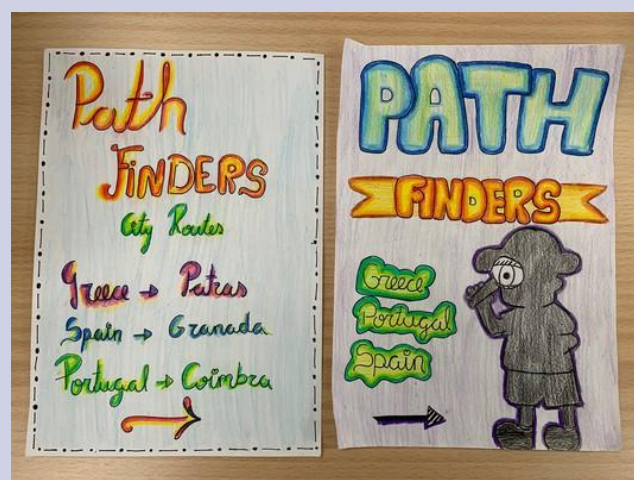 Path
FINDERS
City Routes
Greece → Patras
Spain → Granada
Portugal → Coimbra
PATH
FINDERS
Greece
Portugal
Spain